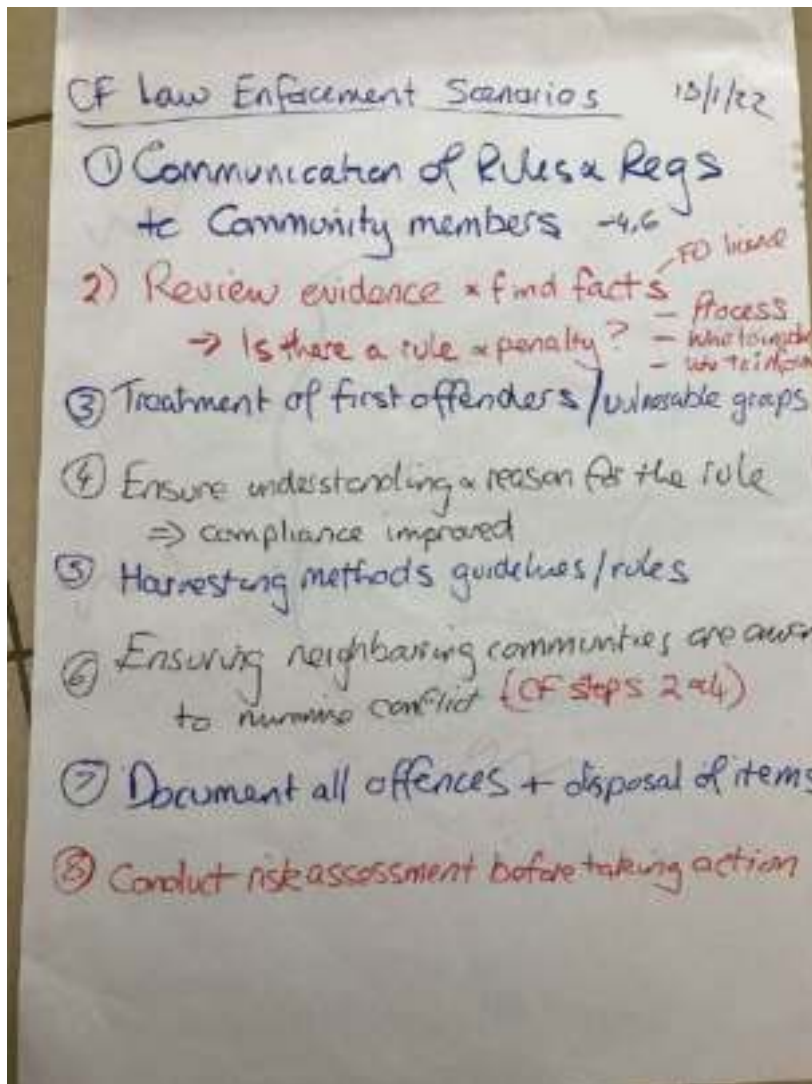 CF Law Enfocement Scenarios
① Communication of Rules & Regs
to Community members - 4,6
2) Review evidence & find facts
FD licence
→ Is there a rule & penalty?
- Process
③ Treatment of first offenders/vulnerable groups
④ Ensure understanding & reason for the rule
⇒ compliance improved
⑤ Harvesting methods guidelines/rules
⑥ Ensuring neighbouring communities are
to minimise conflict (CF steps 2 & 4)
⑦ Document all offences + disposal of items
⑧ Conduct risk assessment before taking action